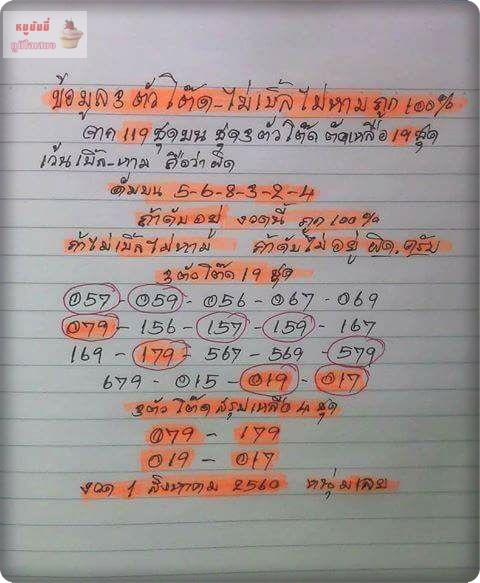 หมูยิ้มยิ้
ภูมิใจเสนอ
ข้อมูล 3 ตัวโต๊ด-ไม่เบิ้ลไม่หามถูก 100%
จาก 119 ชุดบน ชุด 3 ตัวโต๊ด ตัดเหลือ 19 ชุด
เว้นเบิ้ล-หาม ถือว่าผิด
ดับบน 5-6-8-3-2-4
ถ้าดับอยู่ งวดนี้ ถูก 100%
ถ้าไม่เบิ้ลไม่หาม ถ้าดับไม่อยู่ ผิด.ครับ
3 ตัวโต๊ด 19 ชุด
057 - 059 - 056 - 067 - 069
079 - 156 - 157 - 159 - 167
169 - 179 - 567 - 569 - 579
679 - 015 - 019 - 017
3 ตัวโต๊ดสรุปเหลือ 4 ชุด
079 - 179
019 - 017
งวด 1 สิงหาคม 2560 หนุ่มเลย